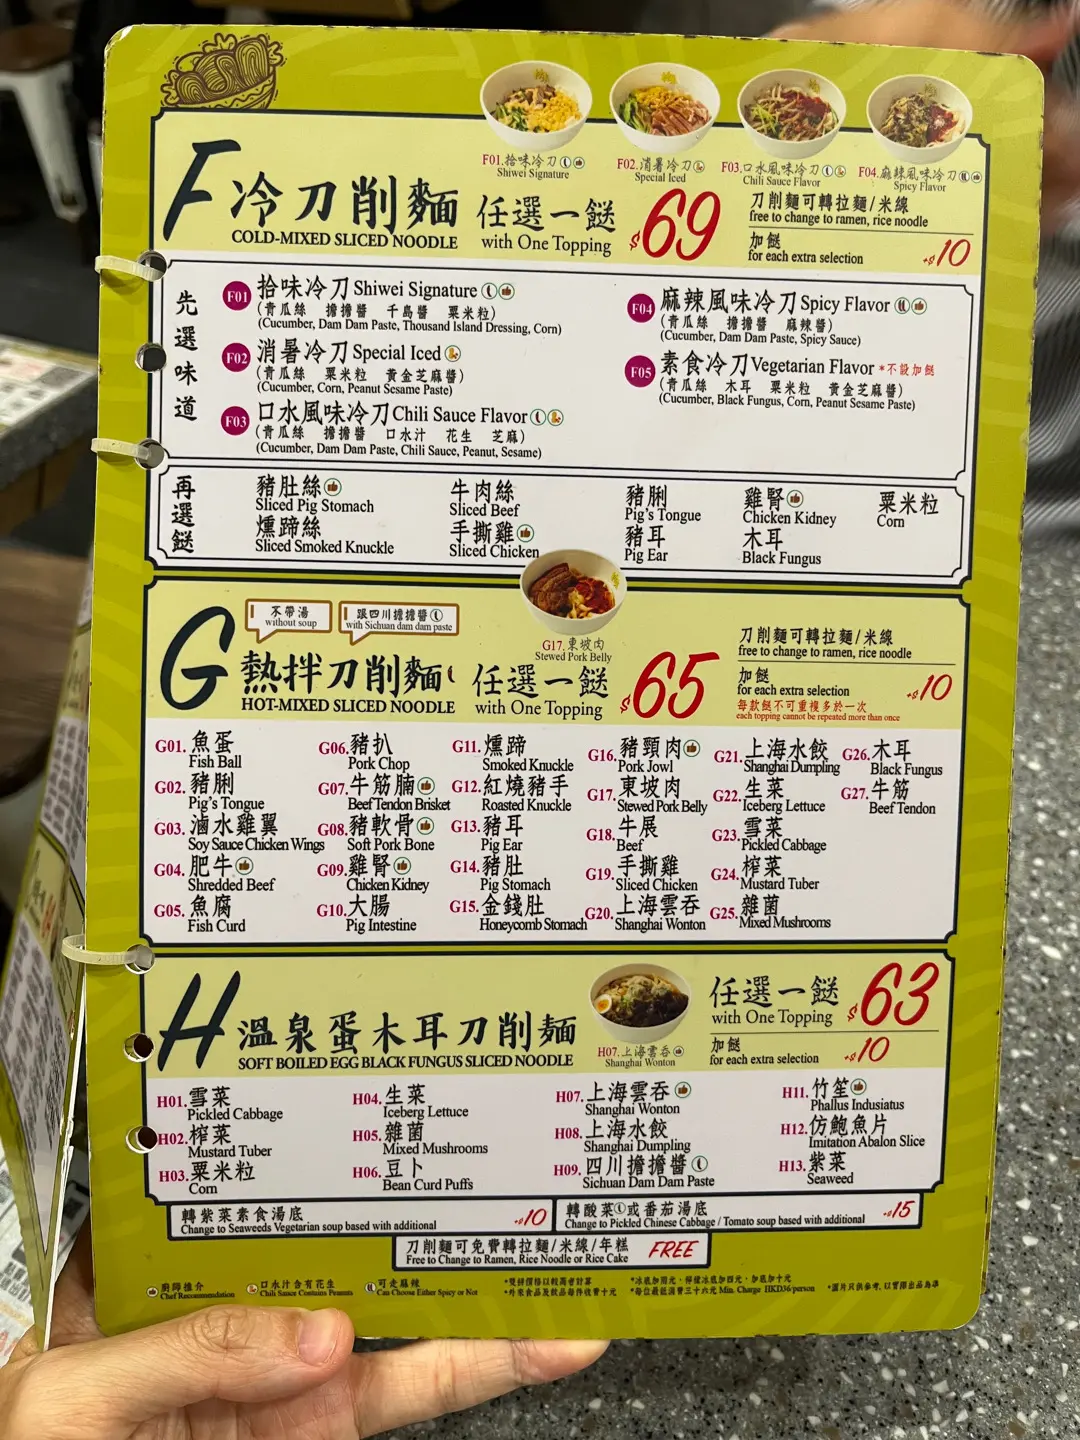 F01.拾味冷刀
Shiwei Signature
F02.消暑冷刀
Special Iced
F03.口水風味冷刀
Chili Sauce Flavor
F04.麻辣風味冷刀
Spicy Flavor
F 冷刀削麵
COLD-MIXED SLICED NOODLE
任選一餸
with One Topping
$69
刀削麵可轉拉麵/米線
free to change to ramen, rice noodle
加餸
for each extra selection
+$10
先選味道
F01 拾味冷刀 Shiwei Signature
(青瓜絲 擔擔醬 千島醬 粟米粒)
(Cucumber, Dam Dam Paste, Thousand Island Dressing, Corn)
F02 消暑冷刀 Special Iced
(青瓜絲 粟米粒 黃金芝麻醬)
(Cucumber, Corn, Peanut Sesame Paste)
F03 口水風味冷刀 Chili Sauce Flavor
(青瓜絲 擔擔醬 口水汁 花生 芝麻)
(Cucumber, Dam Dam Paste, Chili Sauce, Peanut, Sesame)
F04 麻辣風味冷刀 Spicy Flavor
(青瓜絲 擔擔醬 麻辣醬)
(Cucumber, Dam Dam Paste, Spicy Sauce)
F05 素食冷刀 Vegetarian Flavor *不設加餸
(青瓜絲 木耳 粟米粒 黃金芝麻醬)
(Cucumber, Black Fungus, Corn, Peanut Sesame Paste)
再選餸
豬肚絲
Sliced Pig Stomach
燻蹄絲
Sliced Smoked Knuckle
牛肉絲
Sliced Beef
手撕雞
Sliced Chicken
豬脷
Pig's Tongue
豬耳
Pig Ear
雞腎
Chicken Kidney
木耳
Black Fungus
粟米粒
Corn
G 不帶湯
without soup
跟四川擔擔醬
with Sichuan dam dam paste
熱拌刀削麵
HOT-MIXED SLICED NOODLE
G17.東坡肉
Stewed Pork Belly
任選一餸
with One Topping
$65
刀削麵可轉拉麵/米線
free to change to ramen, rice noodle
加餸
for each extra selection
+$10
每款餸不可重複多於一次
each topping cannot be repeated more than once
G01. 魚蛋
Fish Ball
G02. 豬脷
Pig's Tongue
G03. 滷水雞翼
Soy Sauce Chicken Wings
G04. 肥牛
Shredded Beef
G05. 魚腐
Fish Curd
G06. 豬扒
Pork Chop
G07. 牛筋腩
Beef Tendon Brisket
G08. 豬軟骨
Soft Pork Bone
G09. 雞腎
Chicken Kidney
G10. 大腸
Pig Intestine
G11. 燻蹄
Smoked Knuckle
G12. 紅燒豬手
Roasted Knuckle
G13. 豬耳
Pig Ear
G14. 豬肚
Pig Stomach
G15. 金錢肚
Honeycomb Stomach
G16. 豬頸肉
Pork Jowl
G17. 東坡肉
Stewed Pork Belly
G18. 牛展
Beef
G19. 手撕雞
Sliced Chicken
G20. 上海雲吞
Shanghai Wonton
G21. 上海水餃
Shanghai Dumpling
G22. 生菜
Iceberg Lettuce
G23. 雪菜
Pickled Cabbage
G24. 榨菜
Mustard Tuber
G25. 雜菌
Mixed Mushrooms
G26. 木耳
Black Fungus
G27. 牛筋
Beef Tendon
H 溫泉蛋木耳刀削麵
SOFT BOILED EGG BLACK FUNGUS SLICED NOODLE
H07.上海雲吞
Shanghai Wonton
任選一餸
with One Topping
$63
加餸
for each extra selection
+$10
H01. 雪菜
Pickled Cabbage
H02. 榨菜
Mustard Tuber
H03. 粟米粒
Corn
H04. 生菜
Iceberg Lettuce
H05. 雜菌
Mixed Mushrooms
H06. 豆卜
Bean Curd Puffs
H07. 上海雲吞
Shanghai Wonton
H08. 上海水餃
Shanghai Dumpling
H09. 四川擔擔醬
Sichuan Dam Dam Paste
H11. 竹笙
Phallus Indusiatus
H12. 仿鮑魚片
Imitation Abalon Slice
H13. 紫菜
Seaweed
轉紫菜素食湯底
Change to Seaweeds Vegetarian soup based with additional
+$10
轉酸菜或番茄湯底
Change to Pickled Chinese Cabbage / Tomato soup based with additional
+$15
刀削麵可免費轉拉麵/米線/年糕
Free to Change to Ramen, Rice Noodle or Rice Cake
FREE
廚師推介
Chef Recommendation
口水汁含有花生
Chili Sauce Contains Peanuts
可走麻辣
Can Choose Either Spicy or Not
*雙拼價格以較高者計算
*外來食品及飲品每件收費十元
*每位最低消費三十六元 Min. Charge HKD36/person
*圖片只供參考, 以實際出品為準